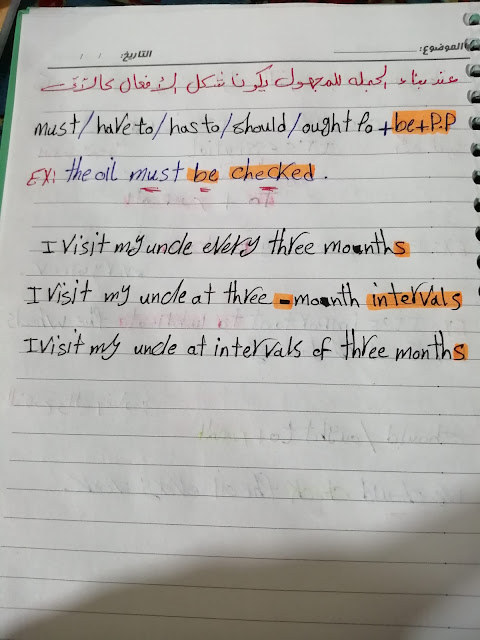 الموضوع: التاريخ: / /
عند بناء الجملة للمجهول يكون شكل الأفعال كالآتي
must/have to/has to/should/ought to +be+P.P
EX: the oil must be checked.
I visit my uncle every three months
I visit my uncle at three-month intervals
I visit my uncle at intervals of three months